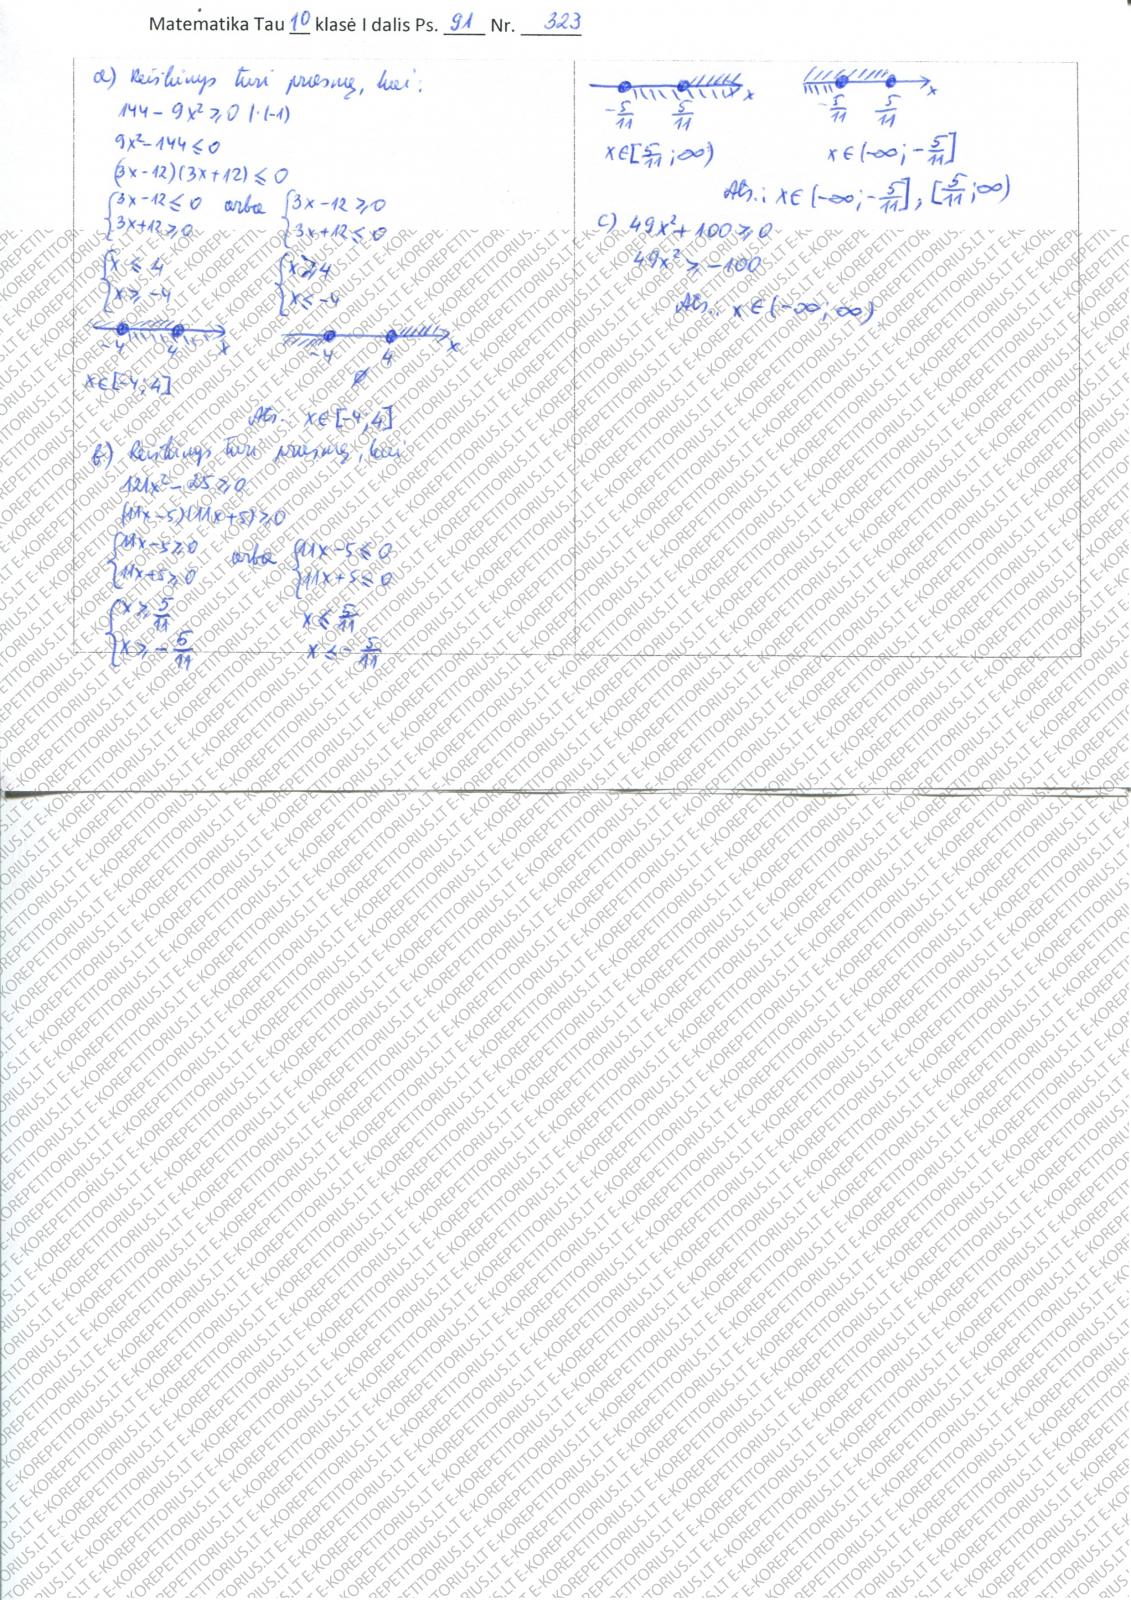 Matematika Tau 10 klasė I dalis Ps. 91 Nr. 323
a) Reiškinys turi prasmę, kai:
144 - 9x² ≥ 0 |·(-1)
9x² - 144 ≤ 0
(3x-12)(3x+12) ≤ 0
{3x-12 ≤ 0 arba {3x-12 ≥ 0
{3x+12 ≥ 0 {3x+12 ≤ 0
{x ≤ 4 {x ≥ 4
{x ≥ -4 {x ≤ -4
-4 4 x -4 4 x
x∈[-4; 4] ∅
Ats.: x∈[-4; 4]
b) Reiškinys turi prasmę, kai
121x² - 25 ≥ 0
(11x-5)(11x+5) ≥ 0
{11x-5 ≥ 0 arba {11x-5 ≤ 0
{11x+5 ≥ 0 {11x+5 ≤ 0
{x ≥ 5/11 x ≤ 5/11
{x ≥ -5/11 x ≤ -5/11
-5/11 5/11 x -5/11 5/11 x
x∈[5/11; ∞) x∈(-∞; -5/11]
Ats.: x∈(-∞; -5/11], [5/11; ∞)
c) 49x² + 100 ≥ 0
49x² ≥ -100
Ats.: x∈(-∞; ∞)
E-KOREPETITORIUS.LT